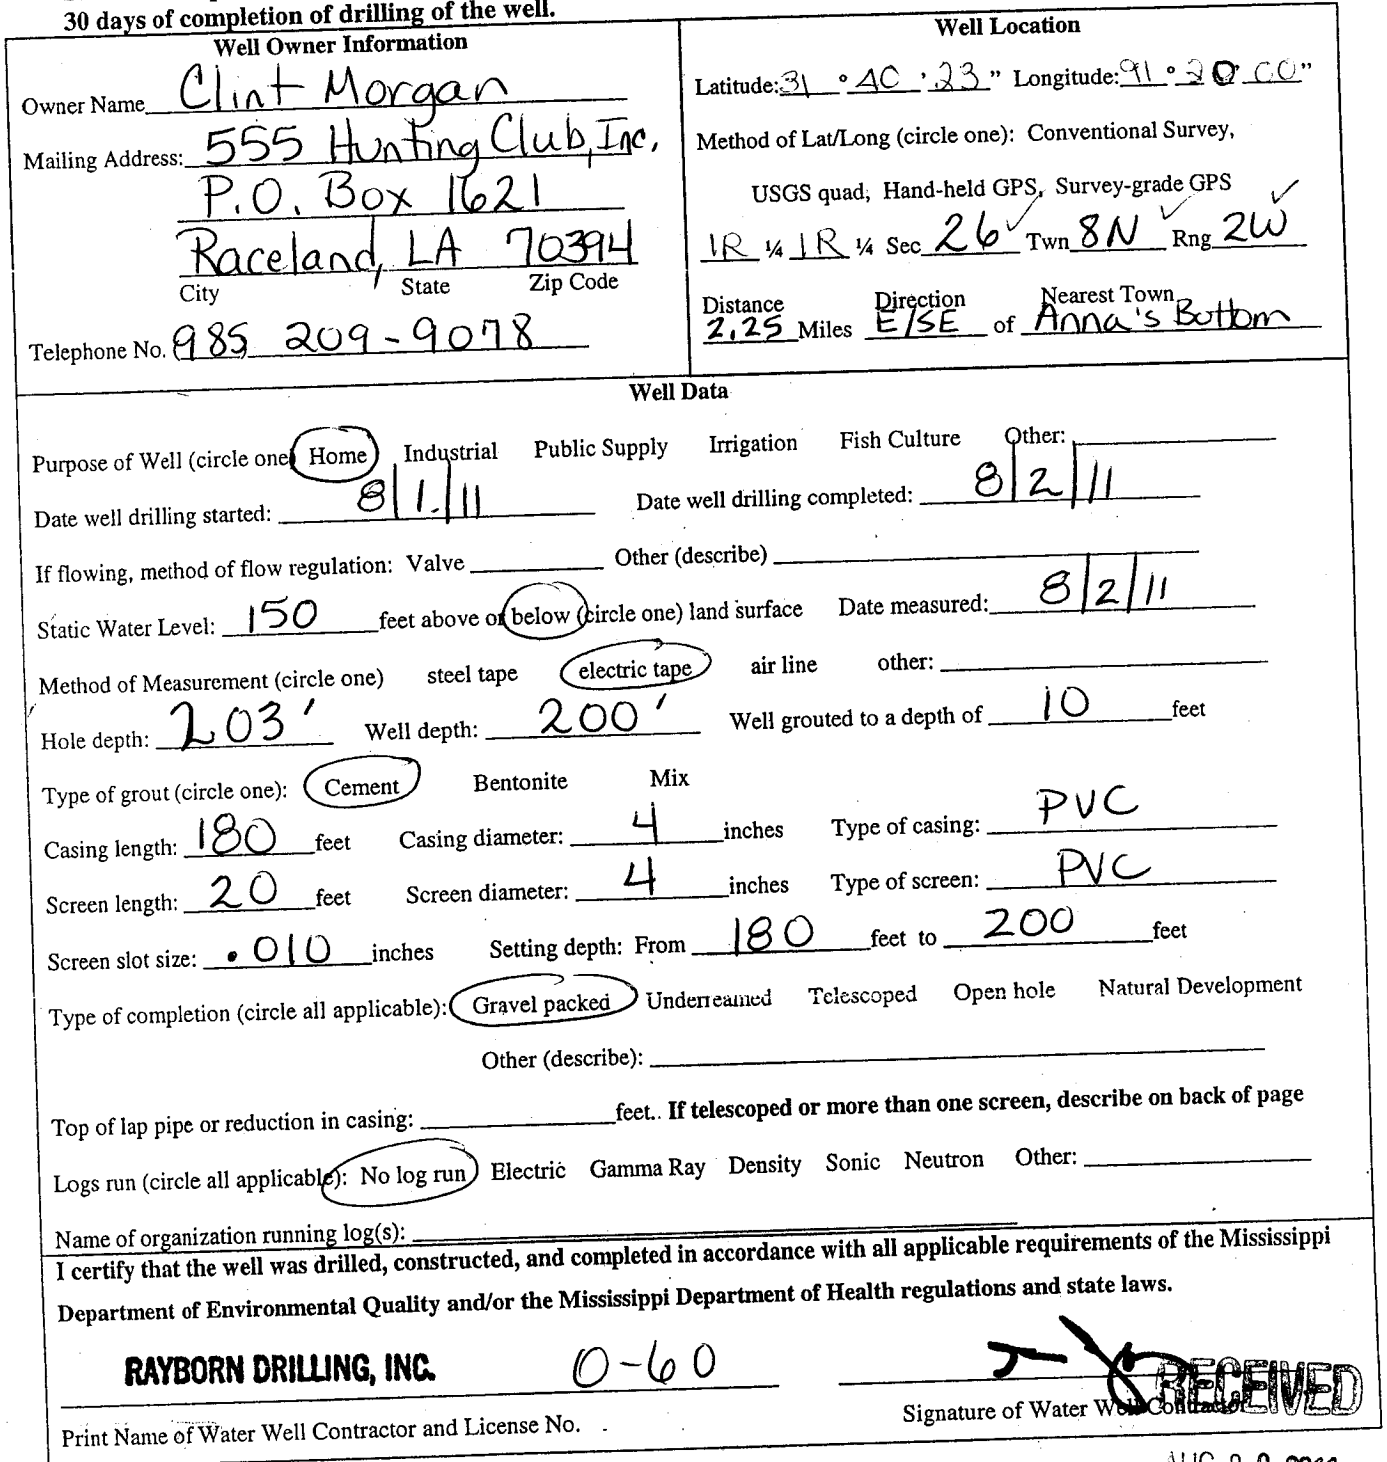 30 days of completion of drilling of the well.
Well Owner Information
Owner Name Clint Morgan
Mailing Address: 555 Hunting Club, Inc.
P.O. Box 1621
Raceland, LA 70394
City State Zip Code
Telephone No. 985 209-9078
Well Location
Latitude: 31 ° 40 ' 23 " Longitude: 91 ° 20 ' 00 "
Method of Lat/Long (circle one): Conventional Survey,
USGS quad, Hand-held GPS, Survey-grade GPS
IR ¼ IR ¼ Sec 26 Twn 8N Rng 2W
Distance Direction Nearest Town
2.25 Miles E/SE of Anna's Bottom
Well Data
Purpose of Well (circle one) Home Industrial Public Supply Irrigation Fish Culture Other:
Date well drilling started: 8/1/11 Date well drilling completed: 8/2/11
If flowing, method of flow regulation: Valve Other (describe)
Static Water Level: 150 feet above or below (circle one) land surface Date measured: 8/2/11
Method of Measurement (circle one) steel tape electric tape air line other:
Hole depth: 203' Well depth: 200' Well grouted to a depth of 10 feet
Type of grout (circle one): Cement Bentonite Mix
Casing length: 180 feet Casing diameter: 4 inches Type of casing: PVC
Screen length: 20 feet Screen diameter: 4 inches Type of screen: PVC
Screen slot size: .010 inches Setting depth: From 180 feet to 200 feet
Type of completion (circle all applicable): Gravel packed Underreamed Telescoped Open hole Natural Development
Other (describe):
Top of lap pipe or reduction in casing: feet.. If telescoped or more than one screen, describe on back of page
Logs run (circle all applicable): No log run Electric Gamma Ray Density Sonic Neutron Other:
Name of organization running log(s):
I certify that the well was drilled, constructed, and completed in accordance with all applicable requirements of the Mississippi
Department of Environmental Quality and/or the Mississippi Department of Health regulations and state laws.
RAYBORN DRILLING, INC. 0-60
RECEIVED
Print Name of Water Well Contractor and License No. Signature of Water Well Contractor